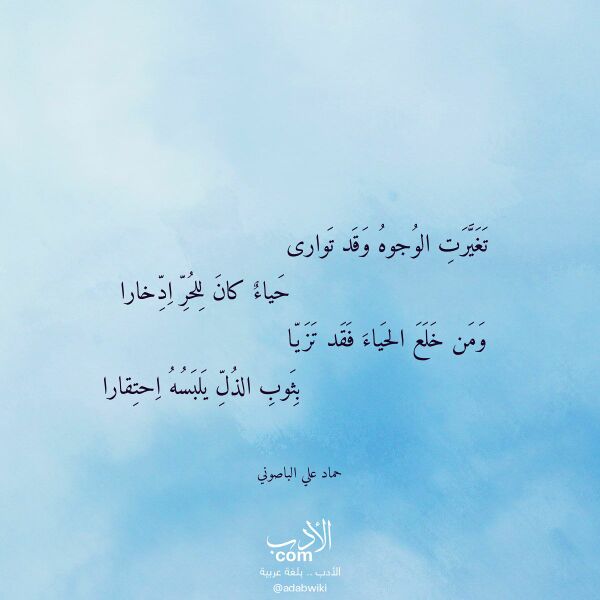 تَغَيَّرَتِ الوُجوهُ وَقَد تَوارى
حَياءٌ كانَ لِلحُرِّ اِدِّخارا
وَمَن خَلَعَ الحَياءَ فَقَد تَزَيّا
بِثَوبِ الذُلِّ يَلبَسُهُ اِحتِقارا
حماد علي الباصوني
الأدب
com
الأدب .. بلغة عربية
@adabwiki